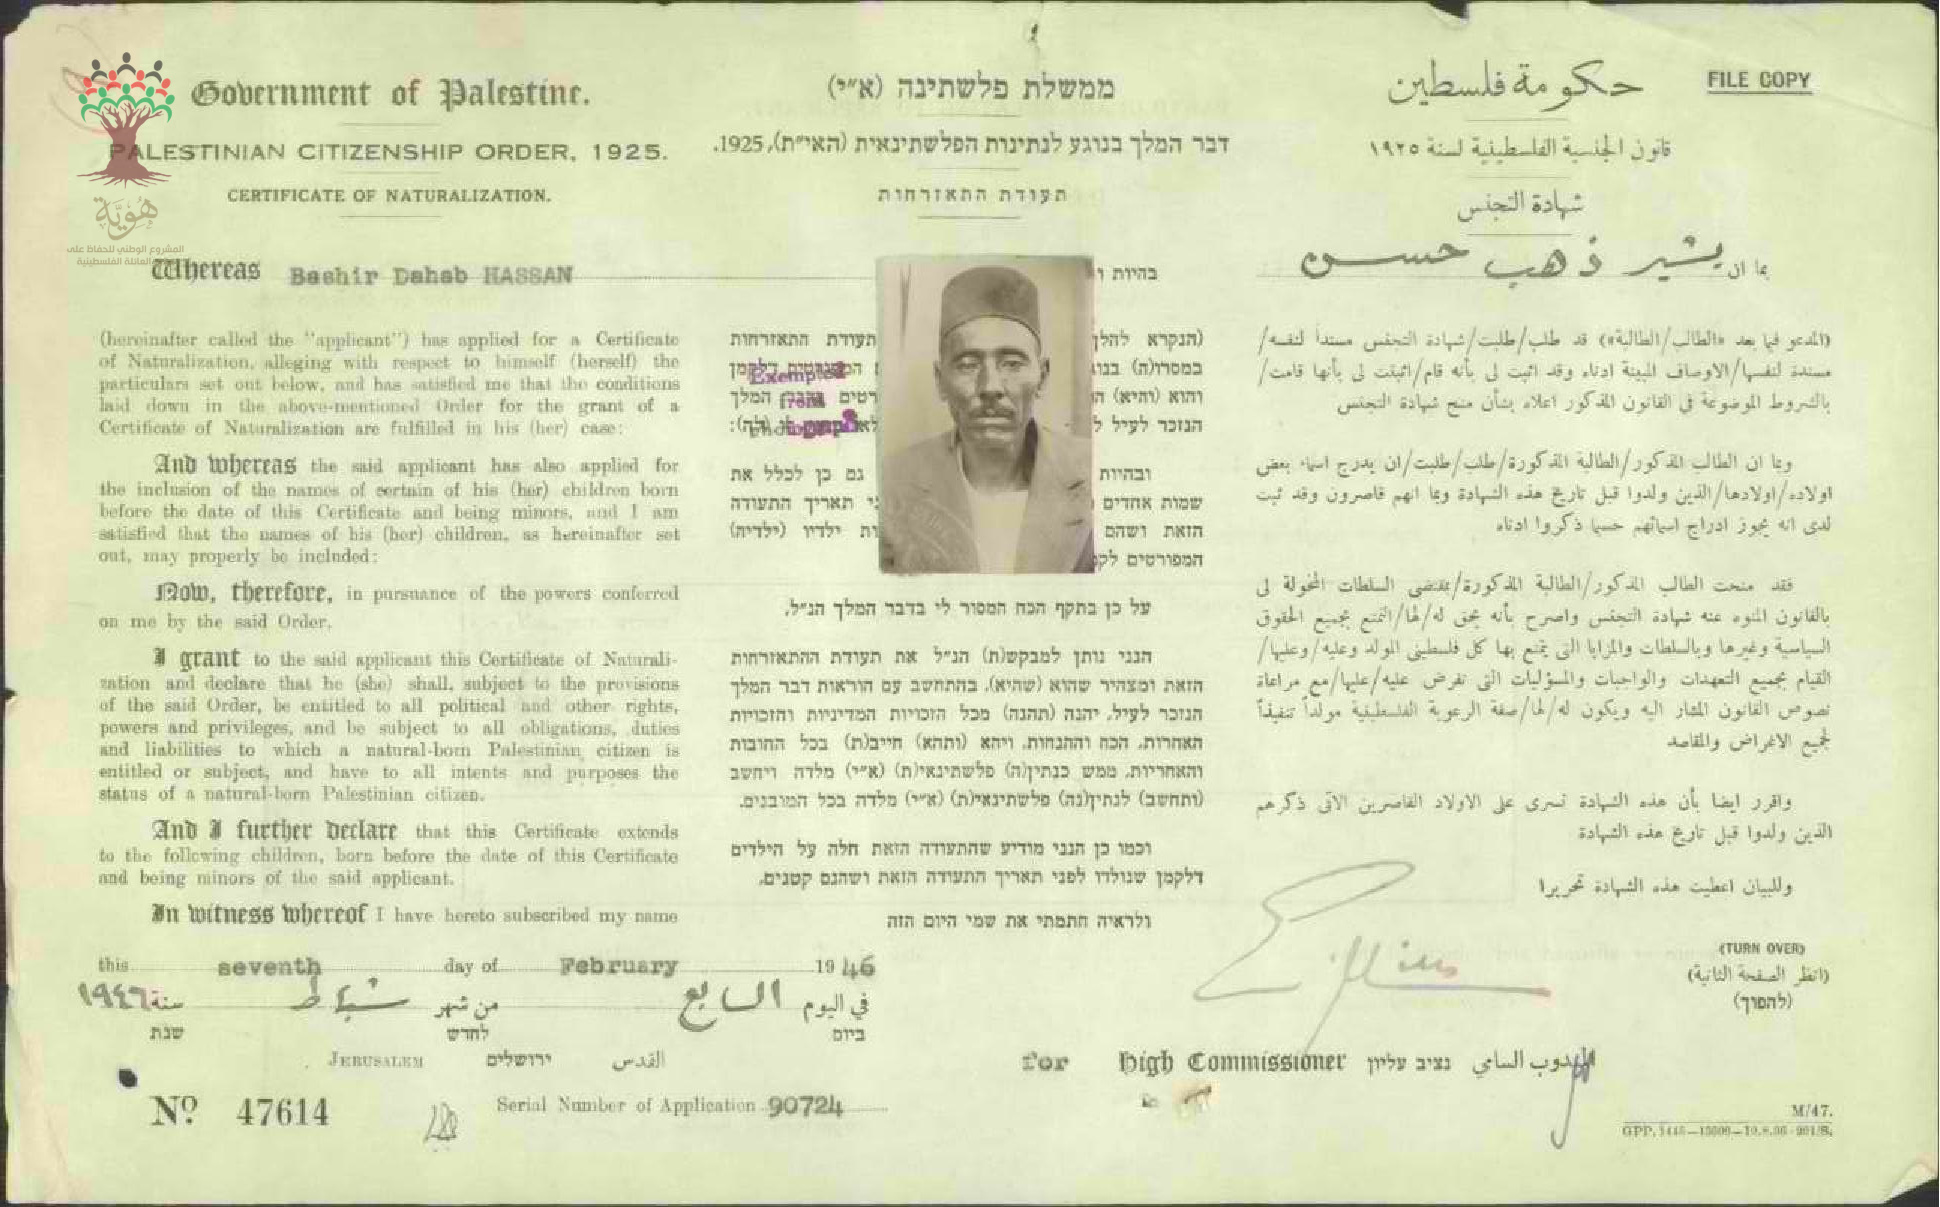 Government of Palestine.
PALESTINIAN CITIZENSHIP ORDER, 1925.
CERTIFICATE OF NATURALIZATION.
هُوِيَّة
المشروع الوطني للحفاظ على
العائلة الفلسطينية
Whereas Bashir Dahab HASSAN
(hereinafter called the "applicant") has applied for a Certificate
of Naturalization, alleging with respect to himself (herself) the
particulars set out below, and has satisfied me that the conditions
laid down in the above-mentioned Order for the grant of a
Certificate of Naturalization are fulfilled in his (her) case:
And whereas the said applicant has also applied for
the inclusion of the names of certain of his (her) children born
before the date of this Certificate and being minors, and I am
satisfied that the names of his (her) children, as hereinafter set
out, may properly be included:
Now, therefore, in pursuance of the powers conferred
on me by the said Order.
I grant to the said applicant this Certificate of Naturali-
zation and declare that he (she) shall, subject to the provisions
of the said Order, be entitled to all political and other rights,
powers and privileges, and be subject to all obligations, duties
and liabilities to which a natural-born Palestinian citizen is
entitled or subject, and have to all intents and purposes the
status of a natural-born Palestinian citizen.
And I further declare that this Certificate extends
to the following children, born before the date of this Certificate
and being minors of the said applicant.
In witness whereof I have hereto subscribed my name
this seventh day of February 1946
في اليوم السابع من شهر شباط سنة ١٩٤٦
ביום לחדש שנת
JERUSALEM ירושלים القدس
No. 47614
Serial Number of Application 90724
ממשלת פלשתינה (א״י)
דבר המלך בנוגע לנתינות הפלשתינאית (הא״ית), 1925.
תעודת התאזרחות
בהיות
(הנקרא להלן תעודת התאזרחות
במסרו(ת) המפורטים דלקמן
והוא (והיא) המלך
הנזכר לעיל
Exempted
from
photograph
ובהיות גם כן לכלל את
שמות אחדים תאריך התעודה
הזאת ושהם ילדיו (ילדיה)
המפורטים
על כן בתקף הכח המסור לי בדבר המלך הנ״ל,
הנני נותן למבקש(ת) הנ״ל את תעודת ההתאזרחות
הזאת ומצהיר שהוא (שהיא), בהתחשב עם הוראות דבר המלך
הנזכר לעיל, יהנה (תהנה) מכל הזכויות המדיניות והזכויות
האחרות, הכח וההנחות, ויהא (ותהא) חייב(ת) בכל החובות
והאחריות, ממש כנתין(ה) פלשתינאי(ת) (א״י) מלדה ויחשב
(ותחשב) לנתין(נה) פלשתינאי(ת) (א״י) מלדה בכל המובנים.
וכמו כן הנני מודיע שהתעודה הזאת חלה על הילדים
דלקמן שנולדו לפני תאריך התעודה הזאת ושהנם קטנים.
ולראיה חתמתי את שמי היום הזה
for High Commissioner נציב עליון المندوب السامي
FILE COPY
حكومة فلسطين
قانون الجنسية الفلسطينية لسنة ١٩٢٥
شهادة التجنس
بما ان بشير ذهب حسن
(المدعو فيما بعد «الطالب/الطالبة») قد طلب/طلبت/شهادة التجنس مسنداً لنفسه/
مسندة لنفسها/الاوصاف المبينة ادناه وقد اثبت لي بأنه قام/اثبتت لي بأنها قامت/
بالشروط الموضوعة في القانون المذكور اعلاه بشأن منح شهادة التجنس
وبما ان الطالب المذكور/الطالبة المذكورة/طلب/طلبت/ان يدرج اسماء بعض
اولاده/اولادها/الذين ولدوا قبل تاريخ هذه الشهادة وبما انهم قاصرون وقد ثبت
لدى انه يجوز ادراج اسمائهم حسبما ذكروا ادناه
فقد منحت الطالب المذكور/الطالبة المذكورة/بمقتضى السلطات المخولة لي
بالقانون المنوه عنه شهادة التجنس واصرح بأنه يحق له/لها/التمتع بجميع الحقوق
السياسية وغيرها وبالسلطات والمزايا التي يتمتع بها كل فلسطيني المولد وعليه/وعليها/
القيام بجميع التعهدات والواجبات والمسؤليات التي تفرض عليه/عليها/مع مراعاة
نصوص القانون المشار اليه ويكون له/لها/صفة الرعوية الفلسطينية مولداً تنفيذاً
لجميع الاغراض والمقاصد
واقرر ايضا بأن هذه الشهادة تسرى على الاولاد القاصرين الآتى ذكرهم
الذين ولدوا قبل تاريخ هذه الشهادة
وللبيان اعطيت هذه الشهادة تحريرا
(TURN OVER)
(انظر الصفحة الثانية)
(להפוך)
M/47.